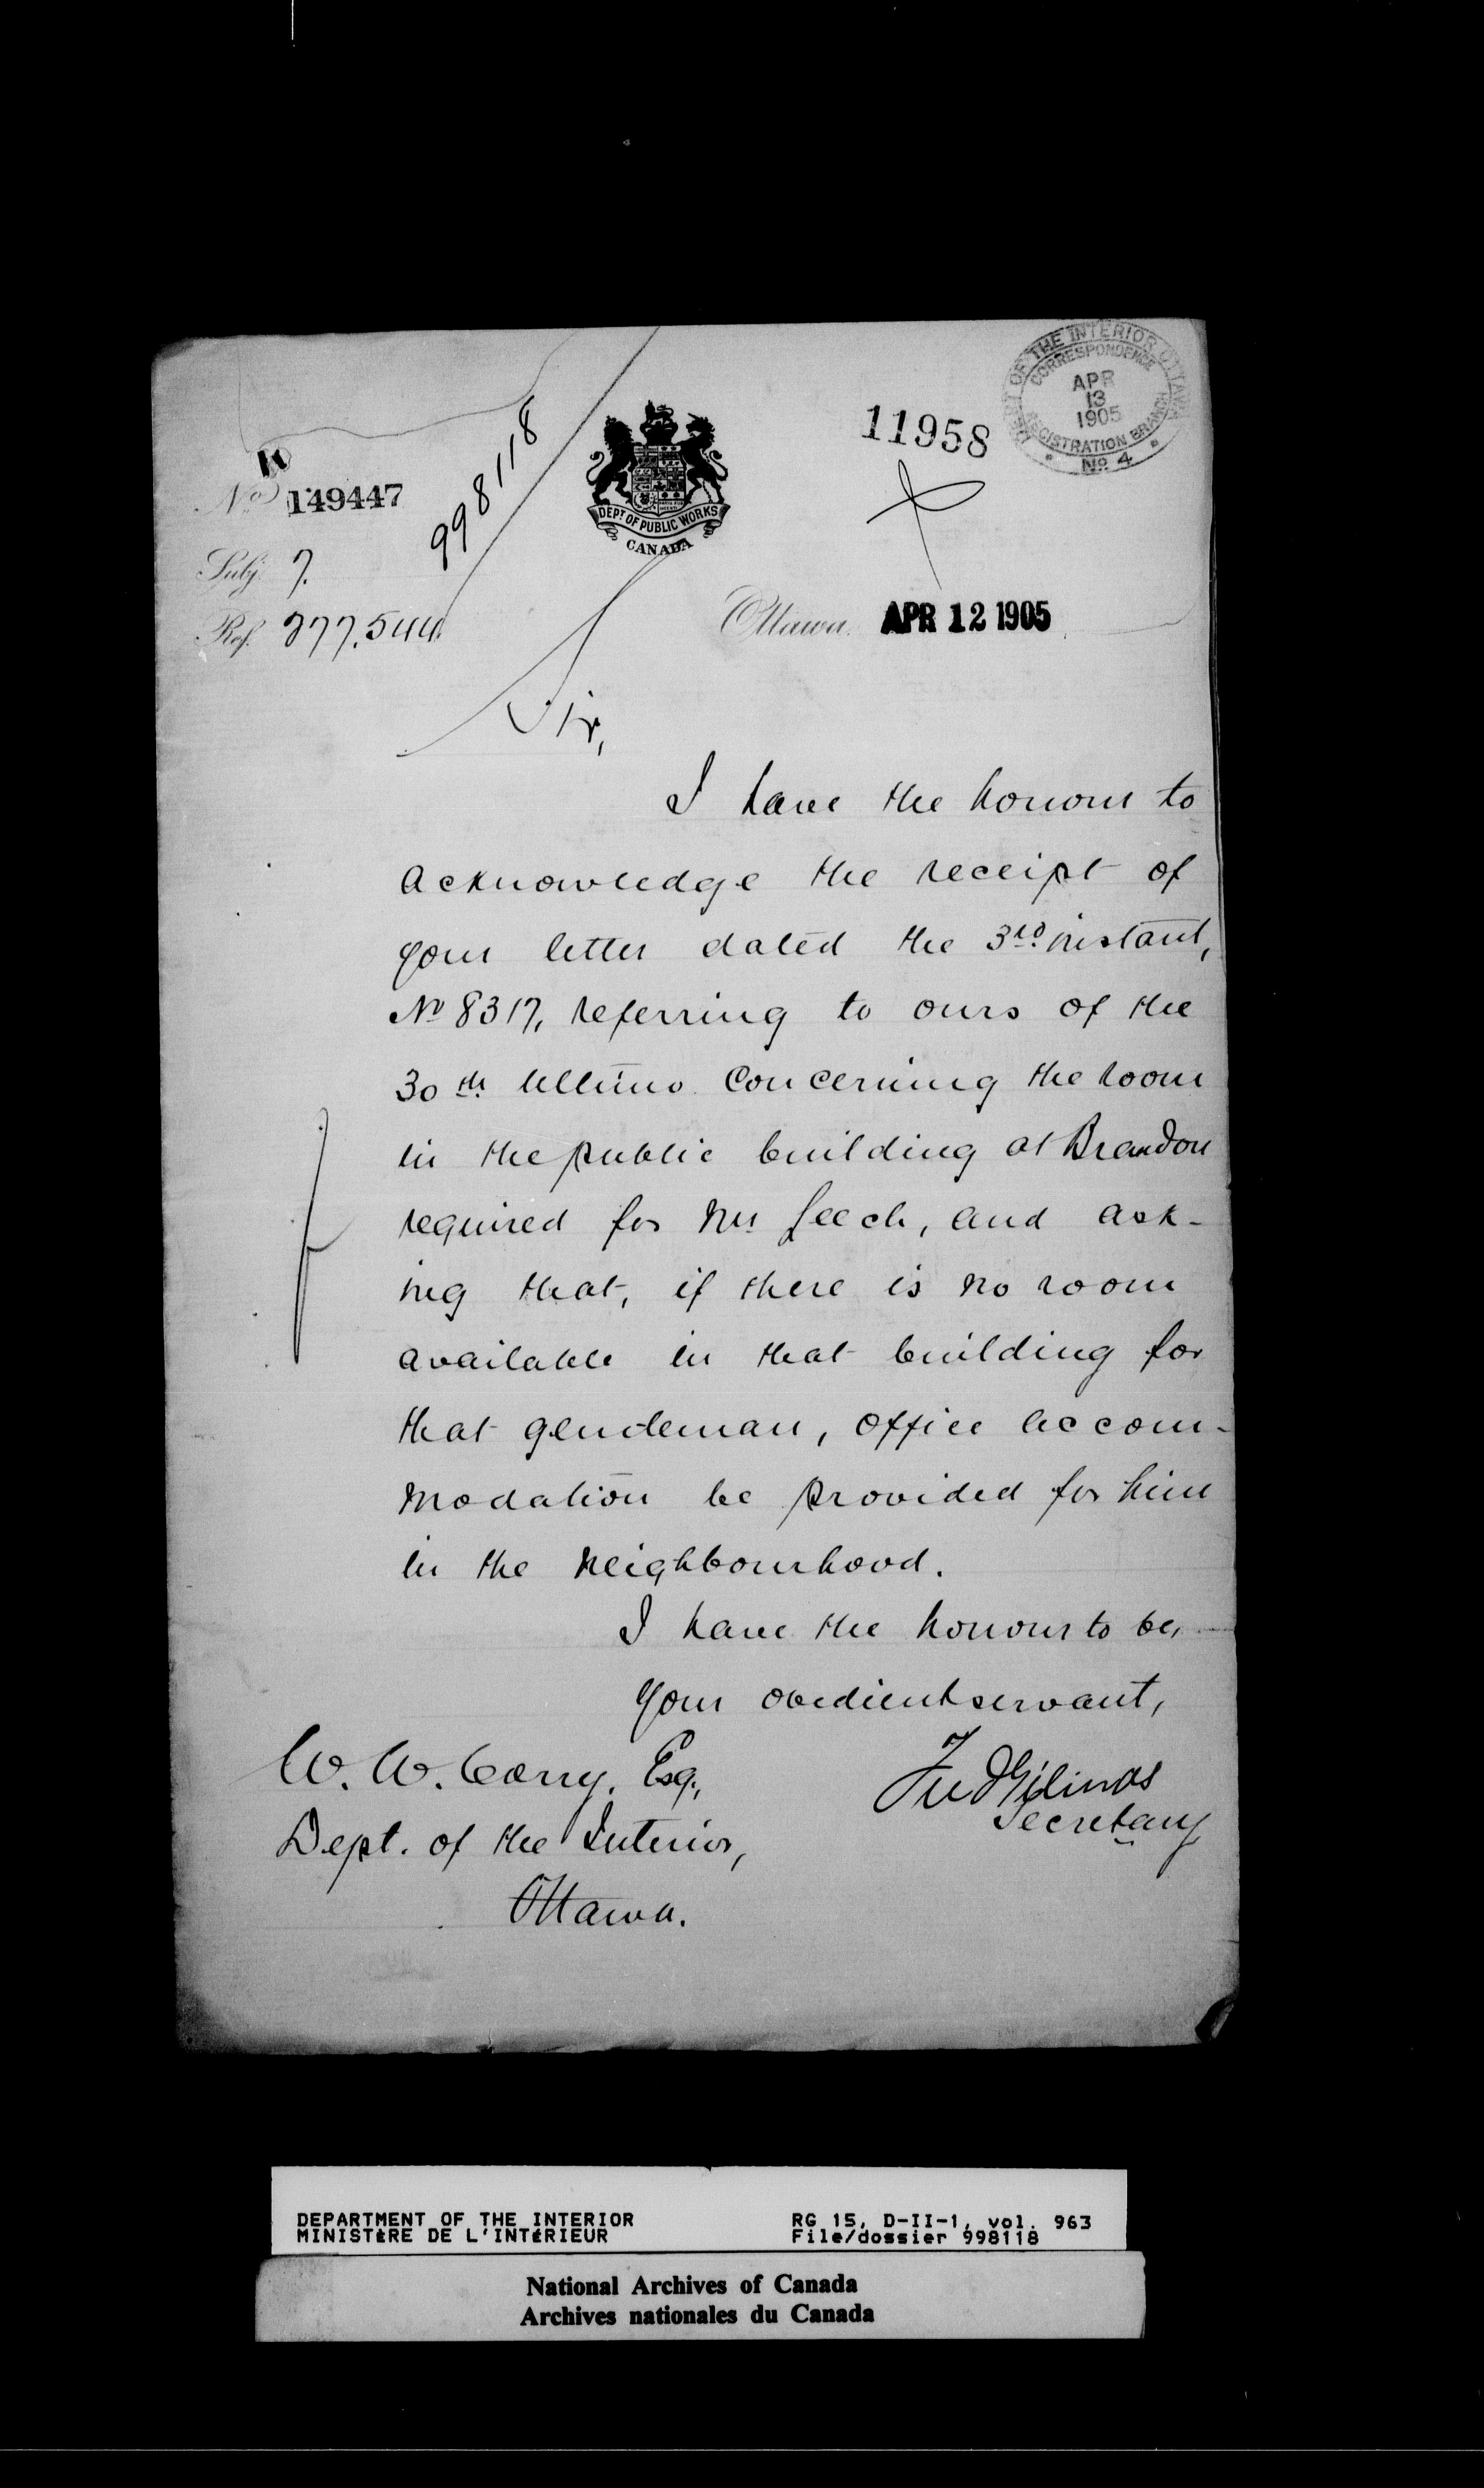 DEPT OF THE INTERIOR OTTAWA
CORRESPONDENCE
APR
13
1905
REGISTRATION BRANCH
No 4
11958
998118
No 149447
DEPT OF PUBLIC WORKS
CANADA
Subj. 7.
Ref. 277,544
Ottawa. APR 12 1905
Sir,
I have the honour to
acknowledge the receipt of
your letter dated the 3rd instant,
No 8317, referring to ours of the
30th ultimo concerning the room
in the public building at Brandon
required for Mr Leech, and ask-
ing that, if there is no room
available in that building for
that gentleman, office accom-
modation be provided for him
in the neighbourhood.
I have the honour to be,
Your obedient servant,
Fred Gélinas
Secretary
W. W. Cory, Esq.,
Dept. of the Interior,
Ottawa.
DEPARTMENT OF THE INTERIOR RG 15, D-II-1, vol. 963
MINISTÈRE DE L'INTÉRIEUR File/dossier 998118
National Archives of Canada
Archives nationales du Canada